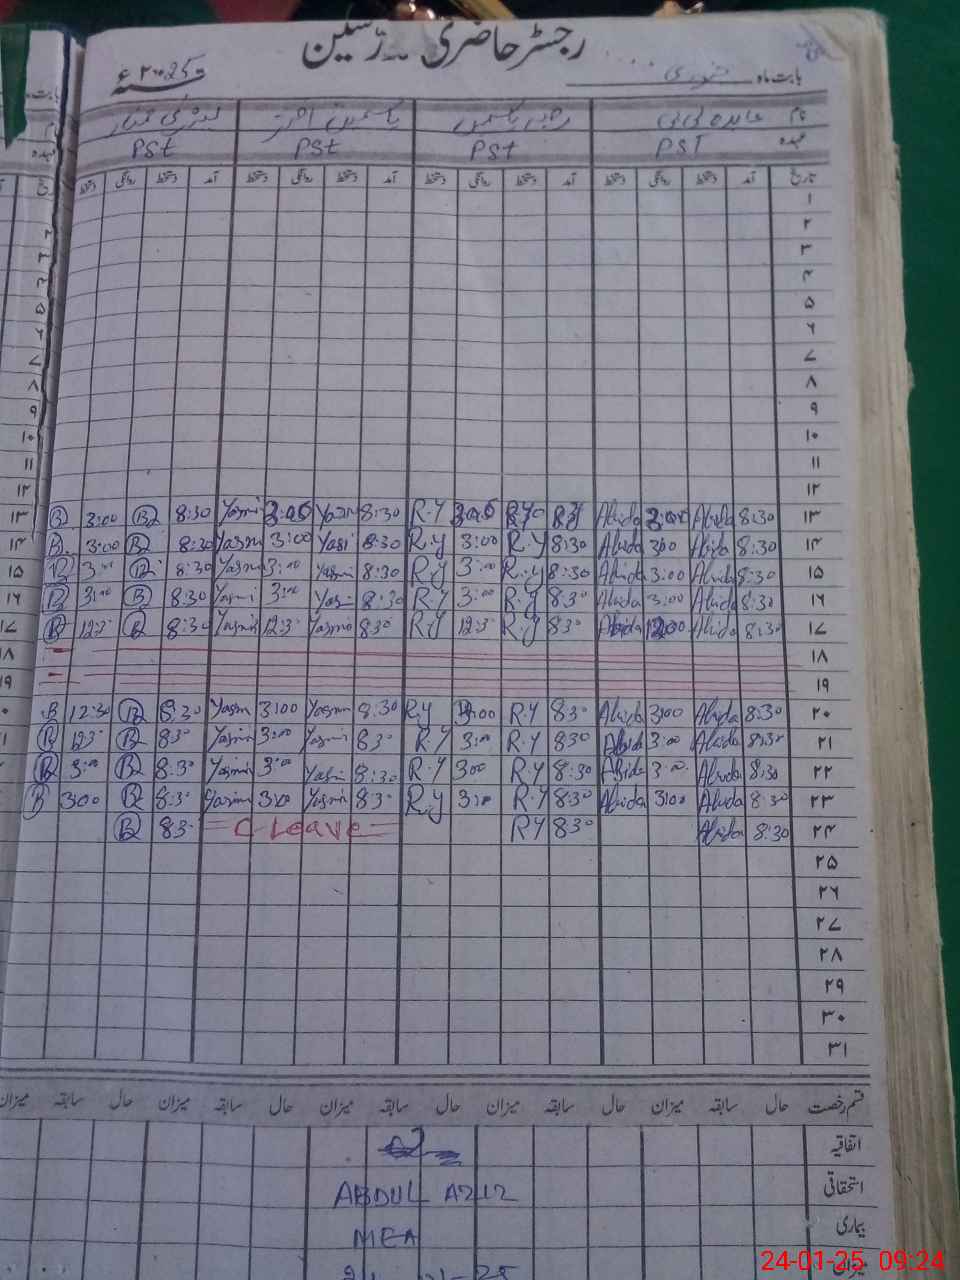 رجسٹر حاضری مدرسین
بابت ماہ جنوری سنہ 2025ء
نام عابدہ بی بی یاسمین اختر
عہدہ PST PSt PSt PSt
تاریخ آمد دستخط روانگی دستخط آمد دستخط روانگی دستخط آمد دستخط روانگی دستخط آمد دستخط روانگی دستخط
۱
۲
۳
۴
۵
۶
۷
۸
۹
۱۰
۱۱
۱۲
۱۳ 8:30 Abida 3:00 Abida R.Y R.Y 8:30 Yasmi 3:00 Yasmi 8:30 B 3:00 B
۱۴ 8:30 Abida 3:00 Abida 8:30 R.Y 3:00 R.Y 8:30 Yasmi 3:00 Yasmi 8:30 B 3:00 B
۱۵ 8:30 Abida 3:00 Abida 8:30 R.Y 3:00 R.Y 8:30 Yasmi 3:00 Yasmi 8:30 B 3:00 B
۱۶ 8:30 Abida 3:00 Abida 8:30 R.Y 3:00 R.Y 8:30 Yasmi 3:00 Yasmi 8:30 B 3:00 B
۱۷ 8:30 Abida 1200 Abida 8:30 R.Y 12:30 R.Y 8:30 Yasmin 12:30 Yasmin 8:30 B 12:30 B
۱۸
۱۹
۲۰ 8:30 Abida 3:00 Abida 8:30 R.Y R.Y 8:30 Yasmin 3:00 Yasmin 8:30 B 12:30 B
۲۱ 8:30 Abida 3:00 Abida 830 R.Y 3:00 R.Y 830 Yasmin 3:00 Yasmin 830 B 12:30 B
۲۲ 8:30 Abida 3:00 Abida 8:30 R.Y 300 R.Y 8:30 Yasmin 3:00 Yasmin 8:30 B 3:00 B
۲۳ 8:30 Abida 3:00 Abida 8:30 R.Y 3:00 R.Y 8:30 Yasmin 3:00 Yasmin 8:30 B 300 B
۲۴ 8:30 Abida 830 R.Y C Leave 830 B
۲۵
۲۶
۲۷
۲۸
۲۹
۳۰
۳۱
قسم رخصت حال سابقہ میزان حال سابقہ میزان حال سابقہ میزان حال سابقہ میزان
اتفاقیہ
استحقاقی ABDUL AZIZ
بیماری MEA
میزان
24-01-25 09:24